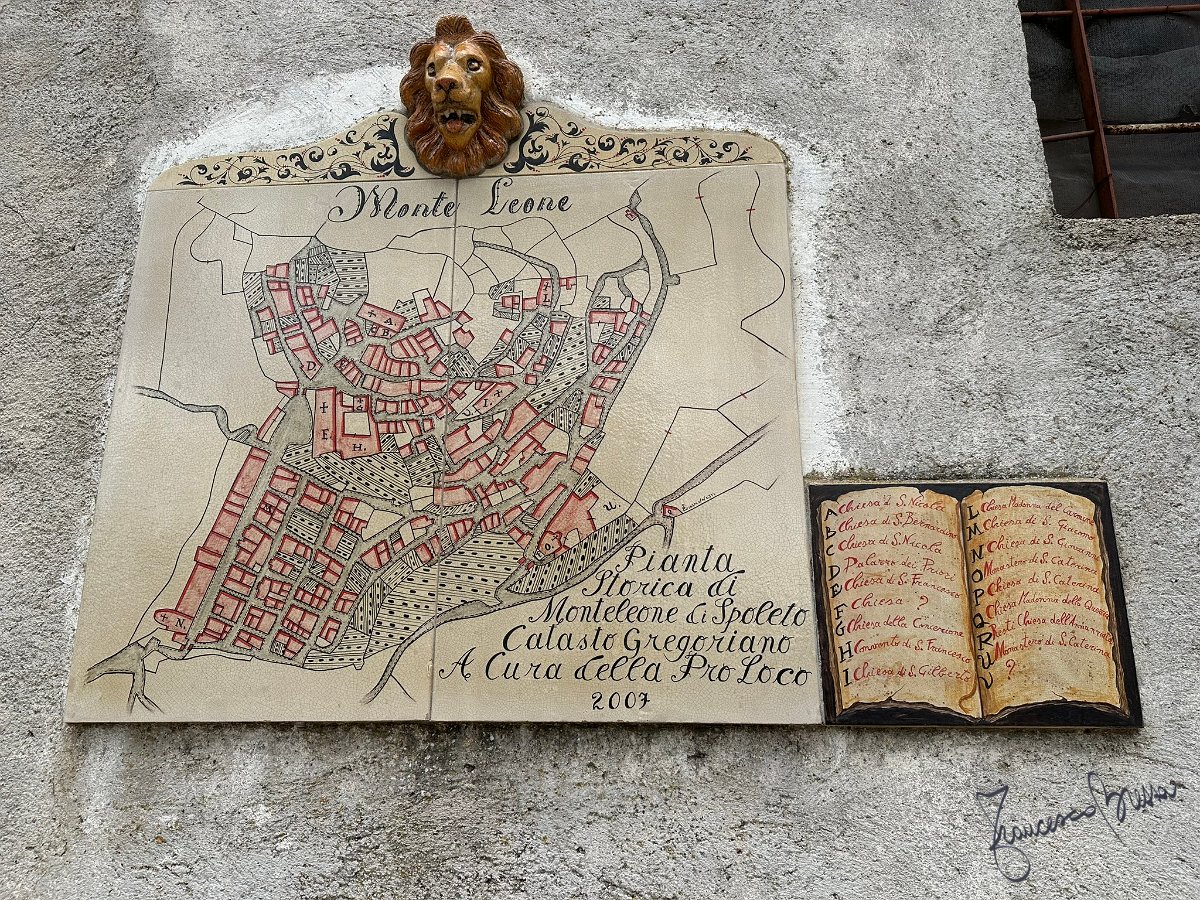 Monte Leone
A B D E H. N. O. U.
Pianta
Storica di
Monteleone di Spoleto
Catasto Gregoriano
A Cura della Pro Loco
2007
A Chiesa di S. Nicola
B Chiesa di S. Bernardino
C Chiesa di S. Nicola
D Palazzo dei Priori
E Chiesa di S. Francesco
F Chiesa ?
G Chiesa della Concezione
H Convento di S. Francesco
I Chiesa di S. Gilberto
L Chiesa Madonna del
M Chiesa di S. Giacomo
N Chiesa di S. Giovanni
O Monastero di S. Caterina
P Chiesa di S. Caterina
Q Chiesa Madonna della Quercia
R Resti Chiesa dell'Annunziata
U Monastero di S. Caterina
?
Francesco